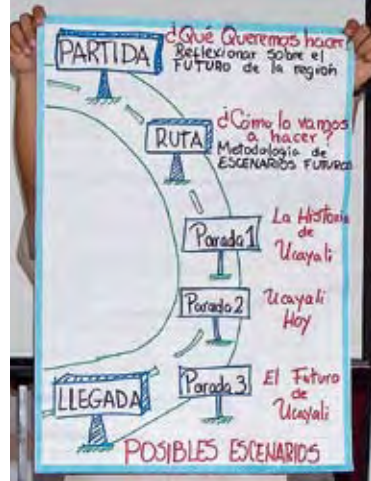 PARTIDA
¿Qué Queremos hacer?
Reflexionar sobre el
FUTURO de la región
RUTA
¿Cómo lo vamos
a hacer?
Metodología de
ESCENARIOS FUTUROS
Parada 1
La Historia
de
Ucayali
Parada 2
Ucayali
Hoy
Parada 3
El Futuro
de
Ucayali
LLEGADA
POSIBLES ESCENARIOS